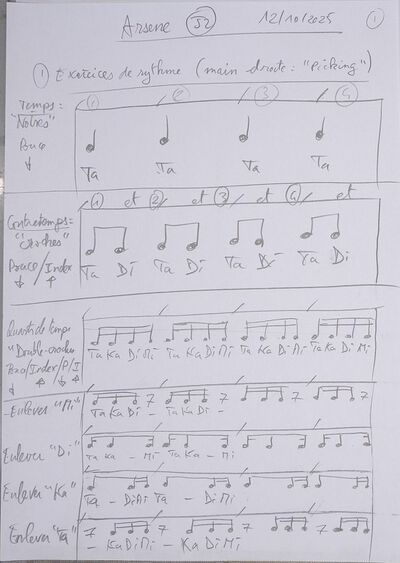 Arsene 52 12/10/2025 1
1 Exercices de rythme (main droite : "Picking")
Temps : 1 / 2 / 3 / 4
"Noires"
Pouce
Ta Ta Ta Ta
Contretemps : 1 et 2 et 3 et 4 et
"Croches"
Pouce/Index
Ta Di Ta Di Ta Di Ta Di
Quarts de temps
"Double-croches
Ta Ka Di Mi Ta Ka Di Mi Ta Ka Di Mi Ta Ka Di Mi
/Index/P/I
- Enlever "Mi"
Ta Ka Di - Ta Ka Di -
Enlever "Di"
Ta Ka - Mi Ta Ka - Mi
Enlever "Ka"
Ta - Di Mi Ta - Di Mi
Enlever "Ta"
- Ka Di Mi - Ka Di Mi